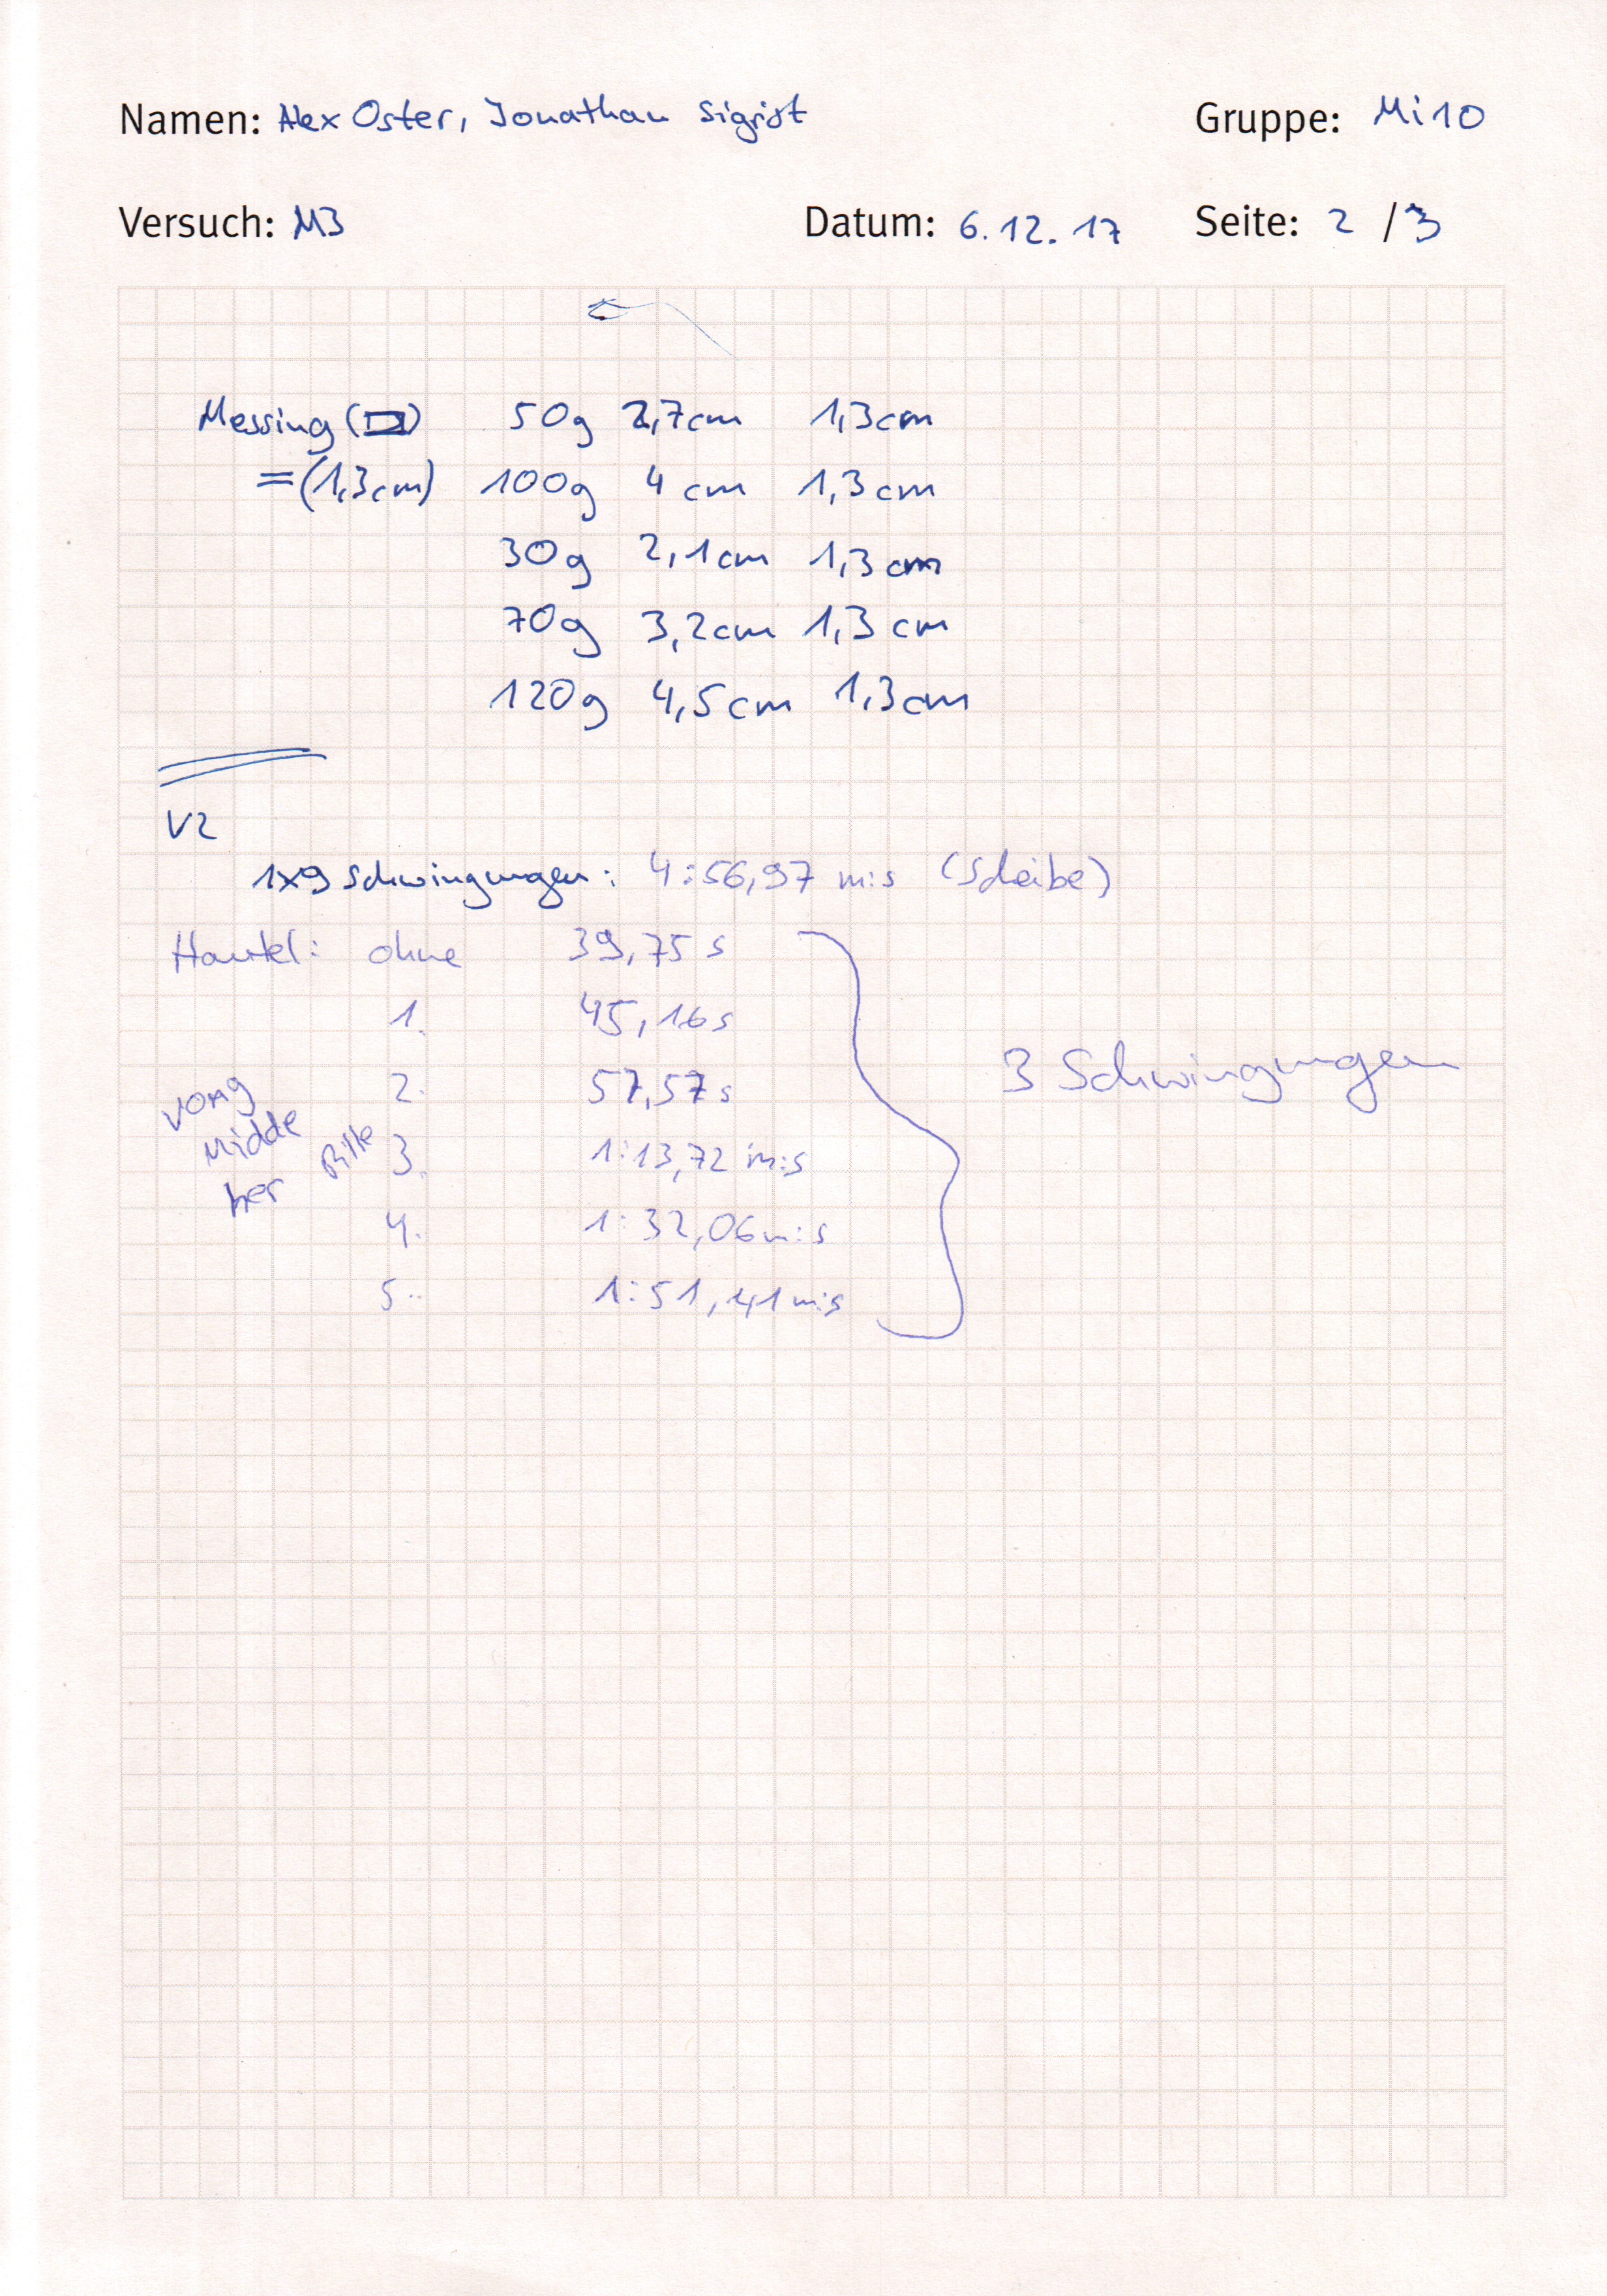 Namen: Alex Oster, Jonathan Sigrist Gruppe: Mi10
Versuch: M3 Datum: 6.12.17 Seite: 2 / 3
Messing ( ) 50g 2,7cm 1,3cm
=(1,3cm) 100g 4 cm 1,3cm
30g 2,1cm 1,3cm
70g 3,2cm 1,3cm
120g 4,5cm 1,3cm
V2
1x9 Schwingungen: 4:56,97 m:s (Scheibe)
Hantel: ohne 39,75 s
1. 45,16s
2. 57,57s
3 Schwingungen
Midde
her
Rille 3. 1:13,72 m:s
4. 1:32,06 m:s
5. 1:51,41 m:s